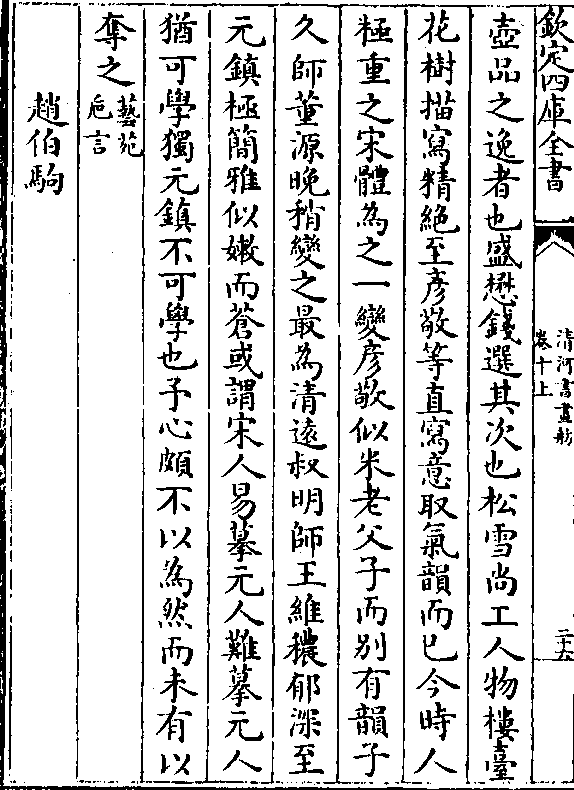 欽定四庫全書
清河書畫舫
卷十上
二十六
壺品之逸者也盛懋錢選其次也松雪尚工人物樓臺
花樹描寫精絶至彦敬等直寫意取氣韻而已今時人
極重之宋體為之一變彦敬似米老父子而别有韻子
久師董源晚稍變之最為清遠叔明師王維穠郁深至
元鎮極簡雅似嫩而蒼或謂宋人易摹元人難摹元人
猶可學獨元鎮不可學也予心頗不以為然而未有以
奪之藝苑
巵言
趙伯駒